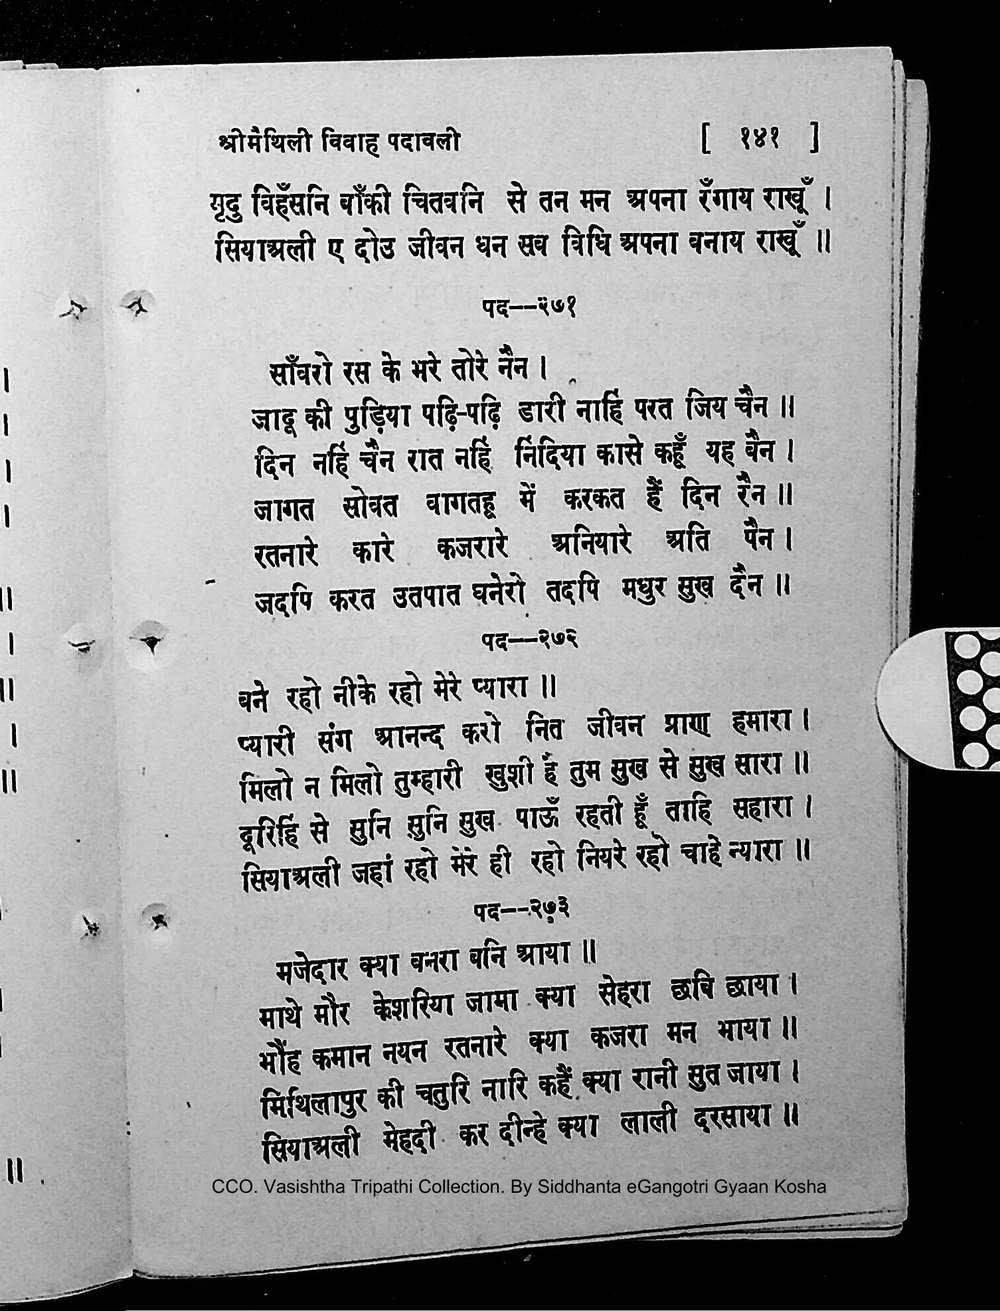 श्रीमैथिली विवाह पदावली [ १४१ ]
मृदु विहँसनि बाँकी चितवनि से तन मन अपना रँगाय राखूँ ।
सियाअली ए दोउ जीवन धन सब विधि अपना बनाय राखूँ ॥
पद--२७१
साँवरो रस के भरे तोरे नैन ।
जादू की पुड़िया पढ़ि-पढ़ि डारी नाहिं परत जिय चैन ॥
दिन नहिं चैन रात नहिं निंदिया कासे कहूँ यह बैन ।
जागत सोवत वागतहू में करकत हैं दिन रैन ॥
रतनारे कारे कजरारे अनियारे अति पैन ।
जदपि करत उतपात घनेरो तदपि मधुर सुख दैन ॥
पद--२७२
बने रहो नीके रहो मेरे प्यारा ॥
प्यारी संग आनन्द करो नित जीवन प्राण हमारा ।
मिलो न मिलो तुम्हारी खुशी है तुम सुख से सुख सारा ॥
दूरिहिं से सुनि सुनि सुख पाऊँ रहती हूँ ताहि सहारा ।
सियाअली जहां रहो मेरे ही रहो नियरे रहो चाहे न्यारा ॥
पद--२७३
मजेदार क्या बनरा बनि आया ॥
माथे मौर केशरिया जामा क्या सेहरा छबि छाया ।
भौंह कमान नयन रतनारे क्या कजरा मन भाया ॥
मिथिलापुर की चतुरि नारि कहैं क्या रानी सुत जाया ।
सियाअली मेहदी कर दीन्हे क्या लाली दरसाया ॥
CCO. Vasishtha Tripathi Collection. By Siddhanta eGangotri Gyaan Kosha